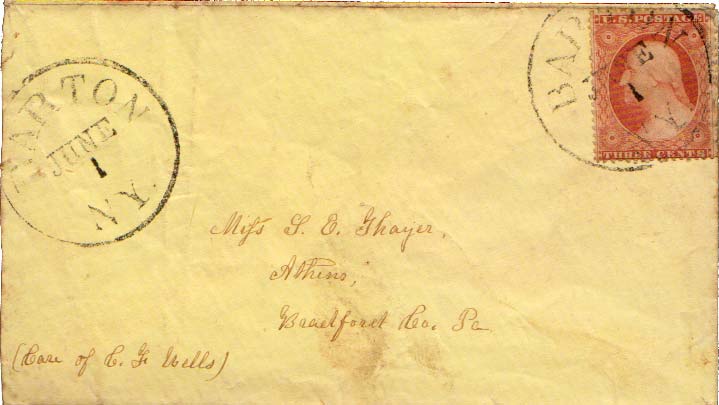 BARTON
JUNE
1
NY.
BARTON
JUNE
1
Y.
U.S. POSTAGE
THREE CENTS
Miſs S. E. Thayer,
Athens,
Bradford Co. Pa
(Care of C. F. Wells)